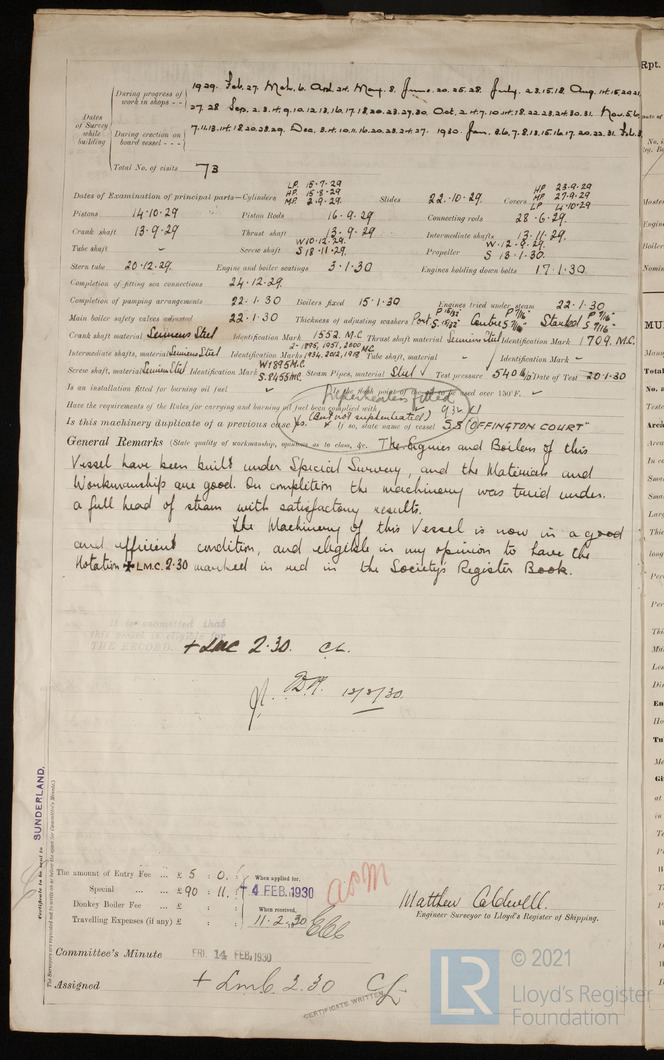 Dates of Survey while building
During progress of work in shops - -
1929. Feb. 27. Mch. 6. Apl. 24. May. 8. June. 20. 25. 28. July. 2. 8. 15. 18. Aug. 14. 15. 20. 21.
27. 28 Sep. 2. 3. 4. 9. 10. 12. 13. 16. 17. 18. 20. 23. 27. 30. Oct. 2. 4. 7. 10. 14. 18. 22. 23. 24. 30. 31. Nov. 5. 6.
During erection on board vessel - - -
7. 11. 13. 14. 18. 20. 28. 29. Dec. 3. 4. 10. 11. 16. 20. 23. 24. 27. 1930. Jan. 3. 6. 7. 8. 13. 15. 16. 17. 20. 22. 31. Feb. 3.
Total No. of visits 73
Dates of Examination of principal parts—Cylinders LP. 15.7.29 HP. 15.8.29 MP. 2.9.29. Slides 22.10.29. Covers HP 23.9.29 MP. 27.9.29 LP 4.10.29
Pistons 14.10.29 Piston Rods 16.9.29 Connecting rods 28.6.29.
Crank shaft 13.9.29 Thrust shaft 13.9.29 Intermediate shafts 13.11.29.
Tube shaft - Screw shaft W 10.12.29. S 18.11.29. Propeller W. 12.9.29. S 13.1.30.
Stern tube 20.12.29. Engine and boiler seatings 3.1.30 Engines holding down bolts 17.1.30
Completion of fitting sea connections 24.12.29.
Completion of pumping arrangements 22.1.30 Boilers fixed 15.1.30 Engines tried under steam 22.1.30
Main boiler safety valves adjusted 22.1.30 Thickness of adjusting washers Port P 15/32" S. 15/32" Centre P 7/16" S 7/16" Starbod P 7/16" S 7/16"
Crank shaft material Seimens Steel Identification Mark 1552 M.C Thrust shaft material Seimens Steel Identification Mark 1709. M.C.
Intermediate shafts, material Seimens Steel Identification Marks 2-1895, 1957, 2000 1934, 2012, 1918 MC Tube shaft, material - Identification Mark -
Screw shaft, material Seimens Steel Identification Mark W 1895 M.C. S. 8455 M.C. Steam Pipes, material Steel Test pressure 540 lb/□" Date of Test 20.1.30
Is an installation fitted for burning oil fuel Is the flash point of the oil to be used over 150°F.
Have the requirements of the Rules for carrying and burning oil fuel been complied with
Superheaters fitted
(But not superheated)
Is this machinery duplicate of a previous case Yes. If so, state name of vessel S.S "OFFINGTON COURT"
General Remarks (State quality of workmanship, opinions as to class, &c. The Engines and Boilers of this
Vessel have been built under Special Survey, and the Materials and
Workmanship are good. On completion the machinery was tried under
a full head of steam with satisfactory results.
The Machinery of this Vessel is now in a good
and efficient condition, and eligible in my opinion to have the
Notation + L.M.C. 2.30 marked in red in the Society's Register Book.
It is submitted that
this vessel is eligible for
THE RECORD. + LMC 2.30. CL.
12/2/30.
Certificate to be sent to SUNDERLAND.
The Surveyors are requested not to write on or below the space for Committee's Minute.
The amount of Entry Fee ... £ 5 : 0 :
Special ... ... £ 90 : 11 :
Donkey Boiler Fee ... £ : :
Travelling Expenses (if any) £ : :
When applied for,
4 FEB. 1930
When received,
11.2.30
Matthew Caldwell.
Engineer Surveyor to Lloyd's Register of Shipping.
Committee's Minute FRI. 14 FEB. 1930
Assigned + LMC 2.30 CL
CERTIFICATE WRITTEN
LR © 2021
Lloyd's Register
Foundation
Rpt.